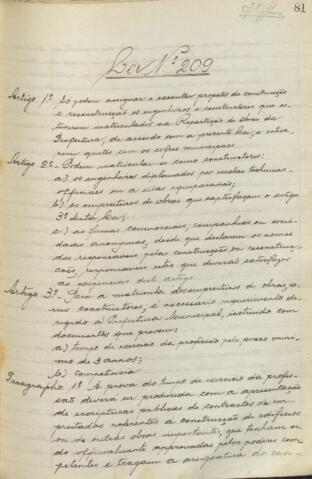 81
Lei Nº 209
Artigo 1º Só podem assignar e executar projectos de construcção
e reconstrucção os engenheiros e constructores que es-
tiverem matriculados na Repartição de Obras da
Prefeitura, de accordo com a presente Lei, e estive-
rem quites com os cofres municipaes.
Artigo 2º Podem matricular-se como constructores:
a) os engenheiros diplomados por escolas technicas
officiaes ou a ellas equiparadas;
b) os empreiteiros de obras que satisfaçam o artigo
3º desta Lei;
c) as firmas commerciaes, companhias ou socie-
dades anonymas, desde que declarem os nomes
dos responsaveis pelas construcções ou reconstruc-
ções, responsaveis estes que deverão satisfazer
as exigencias deste artigo
Artigo 3º Para a matricula dos empreiteiros de obras, co-
mo constructores, é necessario requerimento di-
rigido á Prefeitura Municipal, instruido com
documentos que provem:
a) tempo de exercicio da profissão pelo prazo mini-
mo de 3 annos;
b) competencia
Paragrapho 1º A prova do tempo de exercicio da profis-
são deverá ser produzida com a apresentação
de escripturas publicas de contractos de em-
preitadas referentes a construcção de edificios
ou de outras obras importantes, que tenham si-
do officialmente approvadas pelos poderes com-
petentes e tragam a assignatura do con-